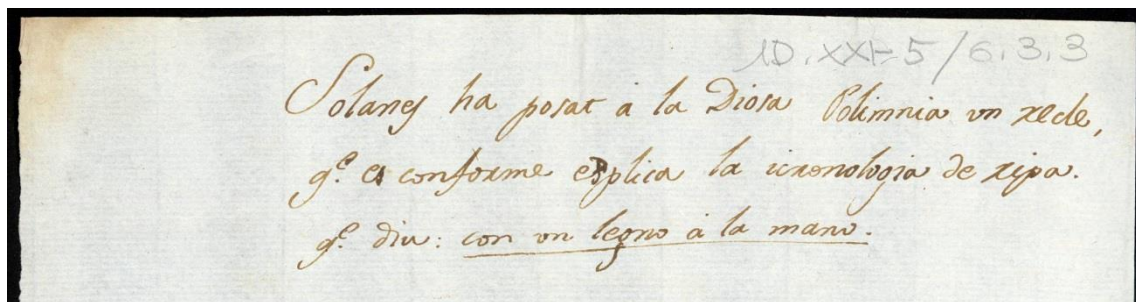 1D.XXI-5/6.3.3
Solanes ha posat à la Diosa Polimnia vn rede,
q.e es conforme esplica la icronologia de ripa.
q.e diu: con vn legno à la mano.